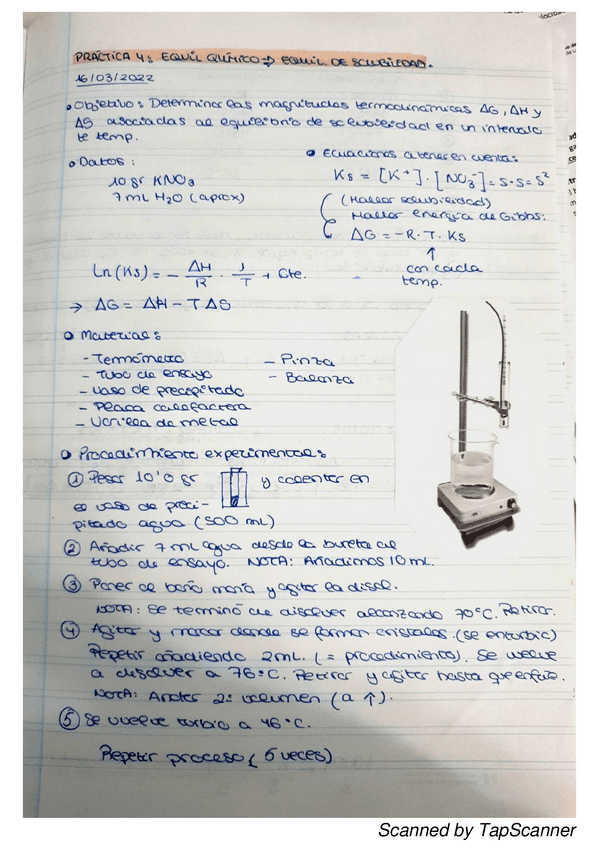 PRÁCTICA 4: EQUIL QUÍMICO ⇒ EQUIL. DE SOLUBILIDAD.
16/03/2022
• Objetivo: Determinar las magnitudes termodinámicas ΔG, ΔH y
ΔS asociadas al equilibrio de solubilidad en un intervalo
te temp.
• Datos:
10 gr KNO₃
7 mL H₂O (aprox)
• Ecuaciones a tener en cuenta:
Ks = [K⁺] · [NO₃⁻] = S·S = S²
(Hallar solubilidad)
Hallar energía de Gibbs:
ΔG = -R · T · Ks
↑
con cada
temp.
Ln (Ks) = - ΔH/R · 1/T + Cte.
→ ΔG = ΔH - T ΔS
• Material:
- Termómetro
- Tubo de ensayo
- Vaso de precipitado
- Placa calefactora
- Varilla de metal
- Pinza
- Balanza
• Procedimiento experimental:
① Pesar 10'0 gr y calentar en
el vaso de preci-
pitado agua (500 mL)
② Añadir 7 mL agua desde la bureta al
tubo de ensayo. NOTA: Añadimos 10 mL.
③ Poner al baño maría y agitar la disol.
NOTA: Se terminó de disolver alcanzado 70°C. Retirar.
④ Agitar y marcar donde se forman cristales. (se enturbia)
Repetir añadiendo 2mL. (= procedimiento). Se vuelve
a disolver a 76°C. Retirar y agitar hasta que enfríe.
NOTA: Anotar 2º volumen (a ↑).
⑤ Se vuelve turbio a 46°C.
Repetir proceso (5 veces)
Scanned by TapScanner